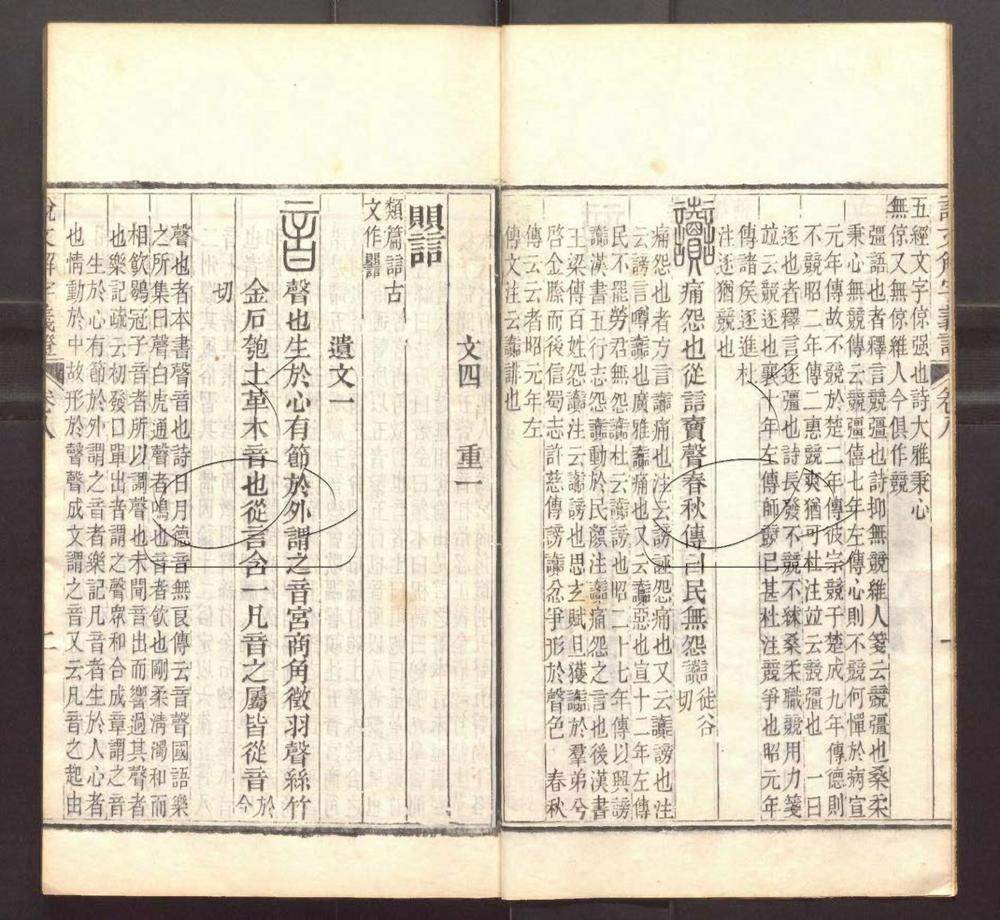 五經文字倞强也詩大雅秉心
無倞又無倞維人今俱作競
彊語也者釋言競彊也詩抑無競維人箋云競彊也桑柔
秉心無競傳云競彊僖七年左傳心則不競何憚於病宣
元年傳故不競於楚二年傳彼宗競于楚成九年傳德則
不競昭二年傳二惠競爽猶可杜注竝云競彊也 一曰
逐也者釋言逐彊也詩長發不競不絿桑柔職競用力箋
竝云競逐也襄十年左傳師競已甚杜注競爭也昭元年
傳諸矦逐進杜
注逐猶競也
痛怨也從誩賣聲春秋傳曰民無怨讟徒谷切
痛怨也者方言讟痛也注云謗誣怨痛也又云讟謗也注
云謗言噂讟也廣雅讟痛也又云讟惡也宣十二年左傳
民不罷勞君無怨讟杜云讟謗也昭二十七年傳以興謗
讟漢書五行志怨讟動於民顏注讟痛怨之言也後漢書
王梁傳百姓怨讟注云讟謗也思玄賦旦獲讟於羣弟兮
啓金縢而後信蜀志許慈傳謗讟忿爭形於聲色 春秋
傳曰者昭元年左
傳文注云讟誹也
文四 重一
誩
類篇誩古
文作
遺文一
音 聲也生於心有節於外謂之音宮商角徵羽聲絲竹
金石匏土革木音也從言含一凡音之屬皆從音於今
切
聲也者本書聲音也詩日月德音無良傳云音聲國語樂
之所集曰聲白虎通聲者鳴也音者飮也剛柔淸濁和而
相飮鶡冠子音者所以調聲也未聞音出而響過其聲者
也樂記疏云初發口單出者謂之聲衆和合成章謂之音
生於心有節於外謂之音者樂記凡音者生於人心者
也情動於中故形於聲聲成文謂之音又云凡音之起由
說文解字義證 卷八